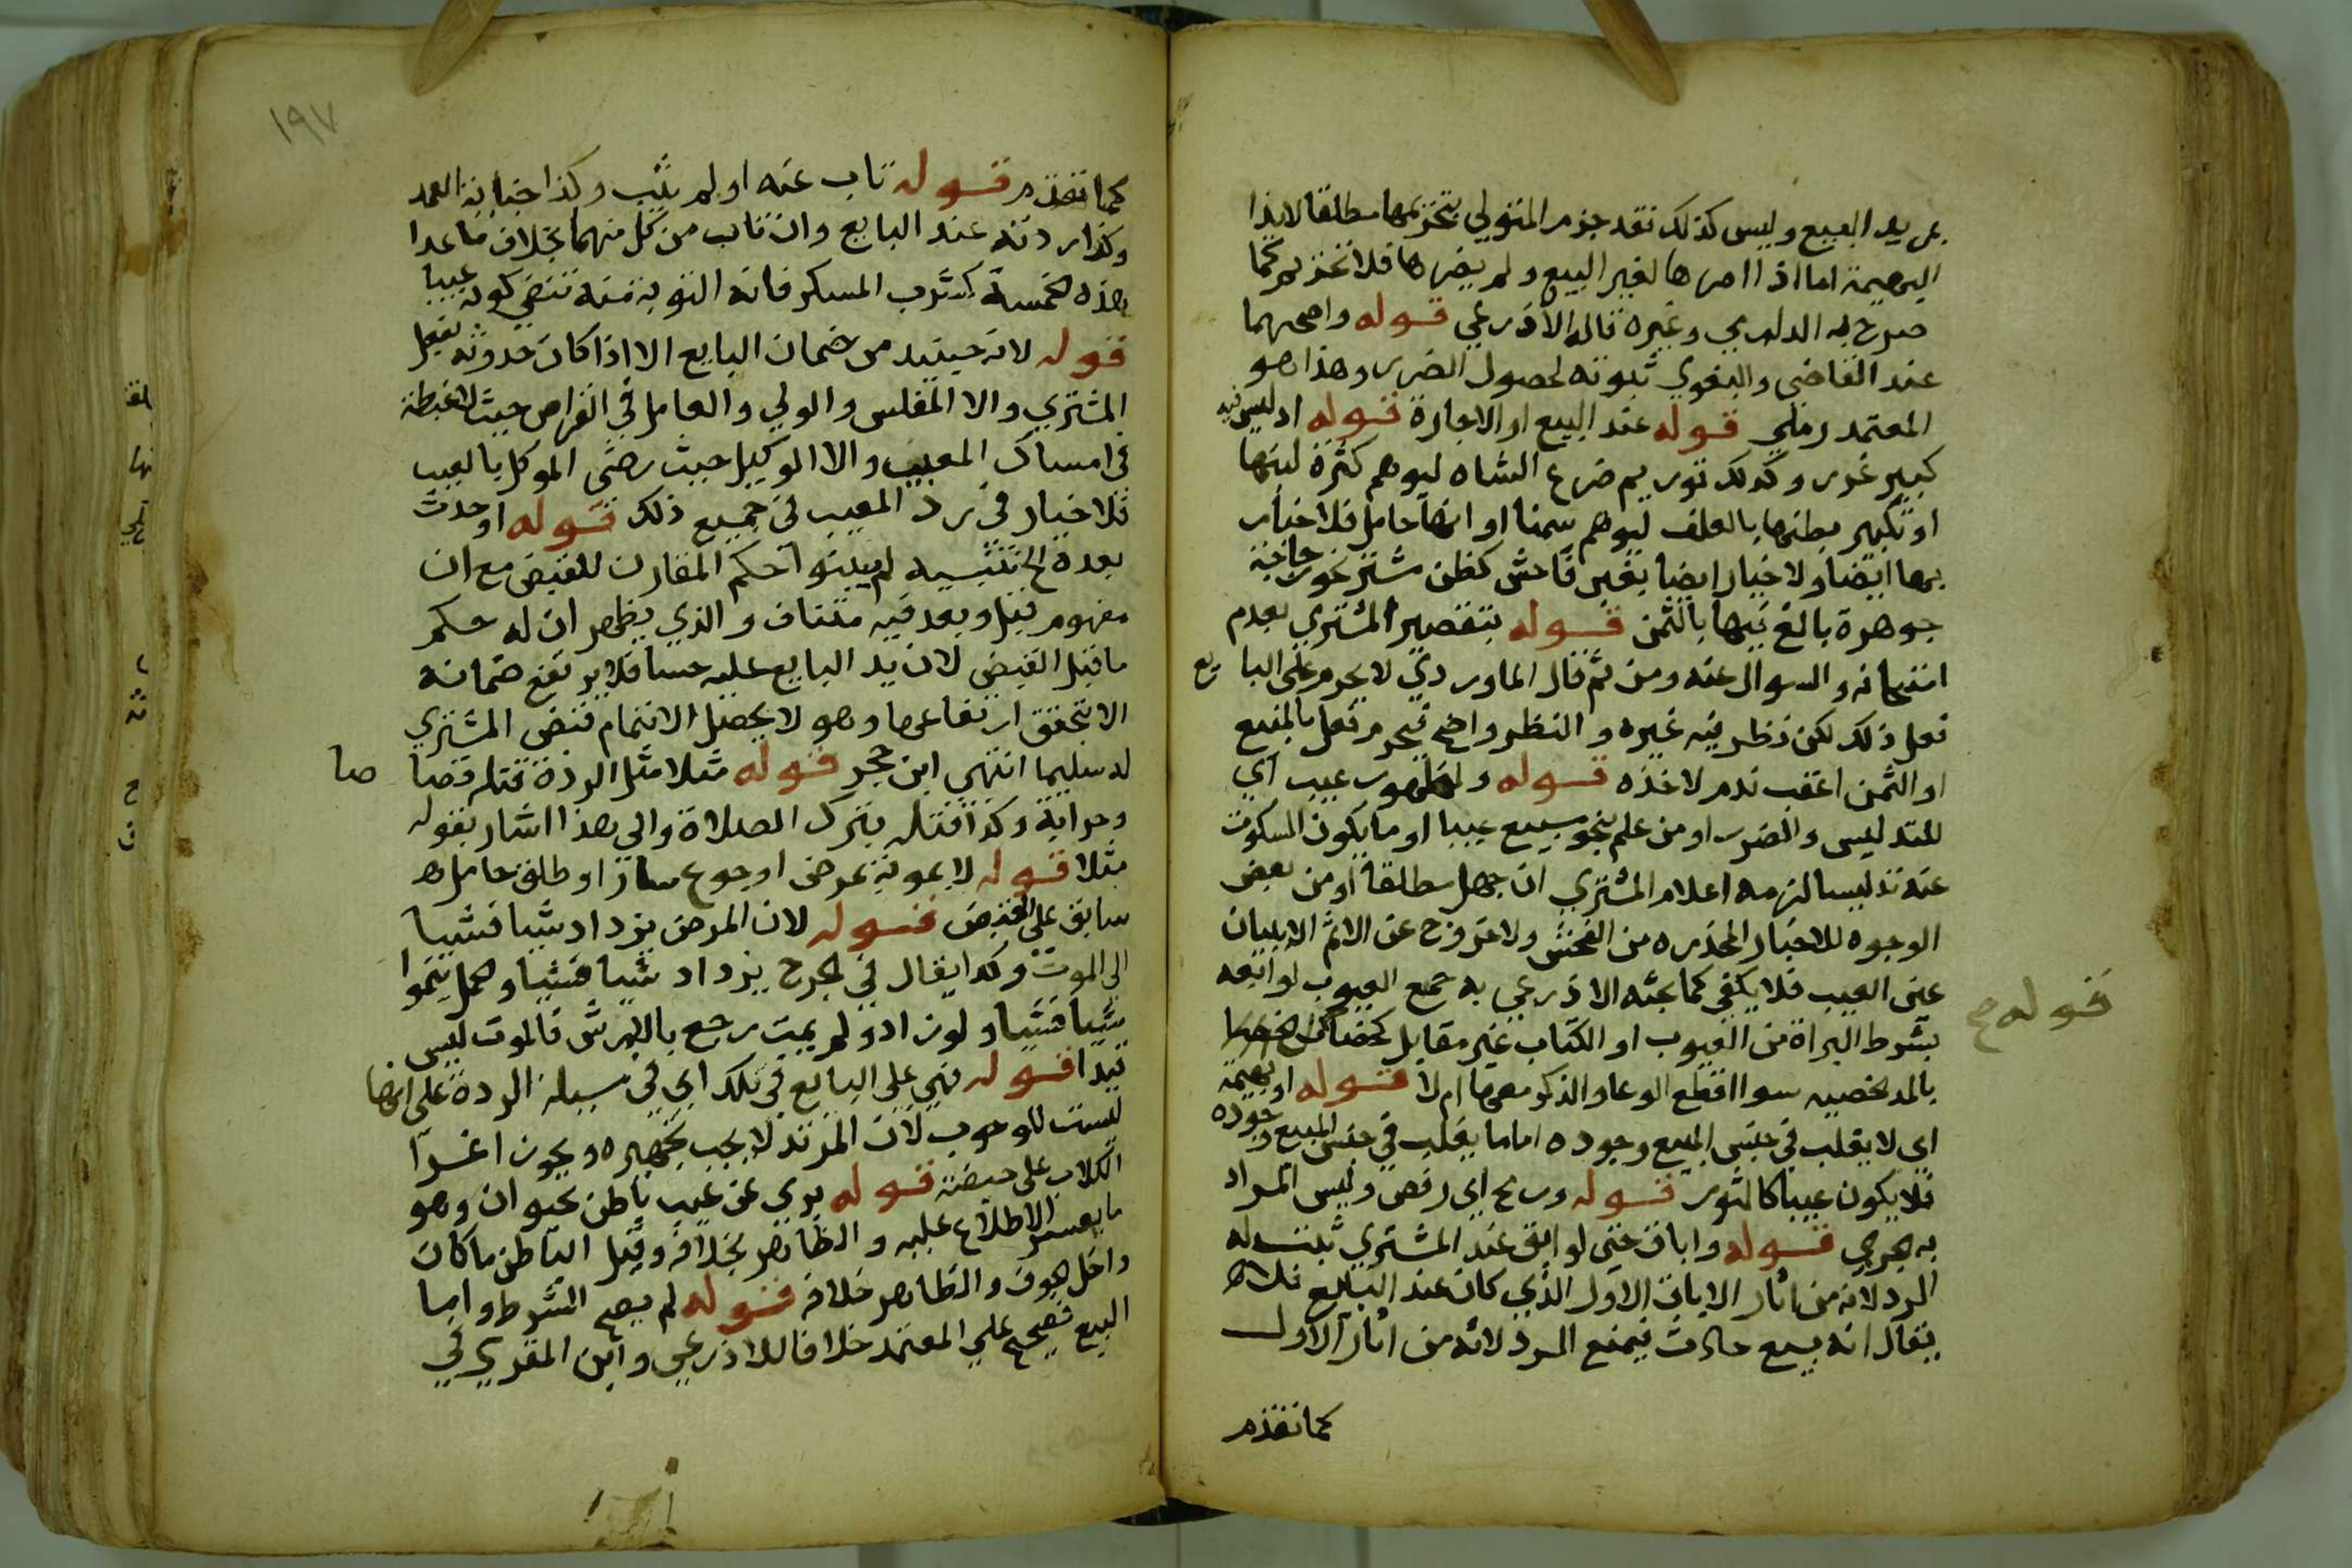 يريد البيع وليس كذلك فقد جزم المتولي بتحريمها مطلقا لايذا
البهيمة اما اذا اصراها لغير البيع ولم يضرها فلا تحريم كما
صرح به الدارمي وغيره قاله الاذرعي قوله واصحهما
عند القاضي والبغوي ثبوته لحصول الضرر وهذا هو
المعتمد رملي قوله عند البيع او الاجارة قوله اذ ليس فيه
كبير غرر وكذلك توريم ضرع الشاه ليوهم كثرة لبنها
او تكبير بطنها بالعلف ليوهم سمنا او انها حامل فلا خيار
بها ايضا ولا خيار ايضا بغبن فاحش كظن مشتر نحو زجاجة
جوهرة بالغ فيها بالثمن قوله بتقصير المشتري بعدم
امتحانه والسوال عنه ومن ثم قال الماوردي لا يحرم على البايع
فعل ذلك لكن نظر فيه غيره والنظر واضح فيحرم فعل بالمبيع
او الثمن اعقب ندم لاخذه قوله ولظهور عيب اي
للتدليس والضرر ومن علم بنحو مبيع عيبا او ما يكون السكوت
عنه تدليسا لزمه اعلام المشتري ان جهل مطلقا او من بعض
الوجوه للاخبار المحذره من الغش ولا عن الاثم الا ببيان
عين العيب فلا يكفي كما بحثه الاذرعي به جمع العيوب لو اتبعه
بشرط البراة من العيوب او الكتاب غير مقابل
بالمد لخصيه سوا اقطع الوعا والذكر معها ام لا قوله او بهيمة
اي لا يغلب في جنس المبيع وجوده اما ما يغلب في جنس المبيع وجوده
فلا يكون عيبا كالثور قوله ورمح اي رفس وليس المراد
به الجري قوله واباق حتى لو ابق عند المشتري ثبت له
الرد لانه من اثار الاباق الاول الذي كان عند البايع فلا
يقال انه بيع حادث فيمنع الرد لانه من اثار الاول
كما تقدم
قوله ح
١٩٧
كما تقدم قوله تاب عنه او لم يتب وكذا جنايه العمد
وكذا ردته عند البايع وان تاب من كل منهما بخلاف ما عدا
هذه الخمسة كشرب المسكر فانه التوبة منه تنفي كونه عيبا
قوله لانه حينيد من ضمان البايع الا اذا كان حدوثه بفعل
المشتري والا المفلس والولي والعامل في القراض حيث لا غبطة
في امساك المعيب والا الوكيل حيث رضي الموكل بالعيب
فلا خيار في رد المعيب في جميع ذلك قوله او حدث
بعده الخ تنبيه لم يبينوا حكم المقارن للقبض مع ان
مفهوم قبل وبعد فيه متناف والذي يظهر ان له حكم
ما قبل القبض لان يد البايع عليه حسا فلا يرتفع ضمانه
الا بتحقق ارتفاعها وهو لا يحصل الا بتمام قبض المشتري
له سليما انتهى ابن حجر قوله مثلا مثل الردة قتله قصا صا
وحرابة وكذا قتله بترك الصلاة والى هذا اشار بقوله
مثلا قوله لا بموته بمرض او جوع او طلق حامل هو
سابق على القبض قوله لان المرض يزداد شيا فشيا
الى الموت وكذا يقال في الجرح يزداد شيا فشيا وحمل ينموا
شيا فشيا ولو زاد ولم يمت رجع بالارش فالموت ليس
قيدا قوله فهي على البايع في تلك اي في مسيلة الردة على انها
ليست للوجوب لان المرتد لا يجب تجهيزه ويجوز اغرا
الكلاب على جيفته قوله بري عن عيب باطن بحيوان وهو
ما يعسر الاطلاع عليه والظاهر بخلافه وقيل الباطن ما كان
داخل الجوف والظاهر خلافه قوله لم يصح الشرط واما
البيع فصحيح على المعتمد خلافا للاذرعي وابن المقري في